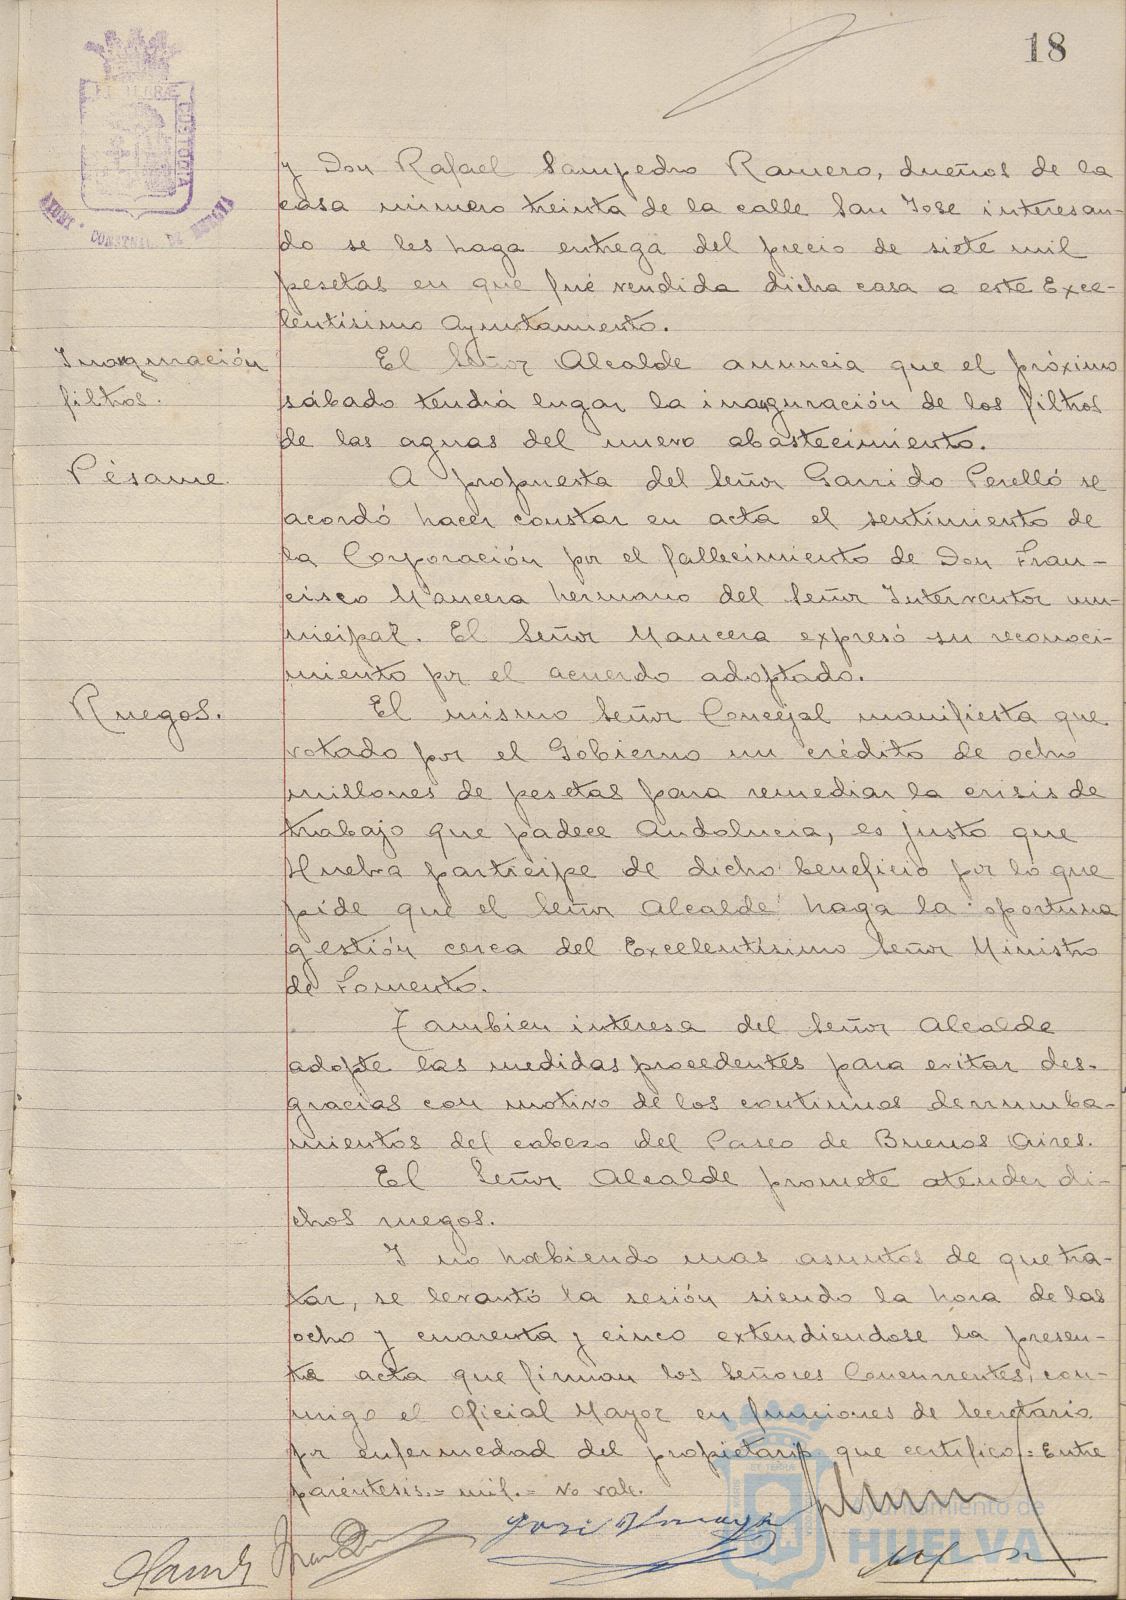 18
y Don Rafael Sampedro Ramero, dueños de la
casa número treinta de la calle San José interesan-
do se les haga entrega del precio de siete mil
pesetas en que fué vendida dicha casa a este Exce-
lentísimo Ayuntamiento.
Inauguración
filtros.
El Señor Alcalde anuncia que el próximo
sábado tendrá lugar la inauguración de los filtros
de las aguas del nuevo abastecimiento.
Pésame.
A propuesta del Señor Garrido Perelló se
acordó hacer constar en acta el sentimiento de
la Corporación por el fallecimiento de Don Fran-
cisco Mancera hermano del Señor Interventor mu-
nicipal. El Señor Mancera expresó su reconoci-
miento por el acuerdo adoptado.
Ruegos.
El mismo Señor Concejal manifiesta que
votado por el Gobierno un crédito de ocho
millones de pesetas para remediar la crisis de
trabajo que padece Andalucia, es justo que
Huelva participe de dicho beneficio por lo que
pide que el Señor Alcalde haga la oportuna
gestión cerca del Excelentísimo Señor Ministro
de Fomento.
Tambien interesa del Señor Alcalde
adopte las medidas procedentes para evitar des-
gracias con motivo de los continuos derrumba-
mientos del cabezo del Paseo de Buenos Aires.
El Señor Alcalde promete atender di-
chos ruegos.
Y no habiendo mas asuntos de que tra-
tar, se levantó la sesión siendo la hora de las
ocho y cuarenta y cinco extendiendose la presen-
te acta que firman los Señores Concurrentes, con-
migo el Oficial Mayor en funciones de Secretario
por enfermedad del propietario que certifico.= Entre
paréntesis.= mif.= No vale.
Ayuntamiento de
HUELVA